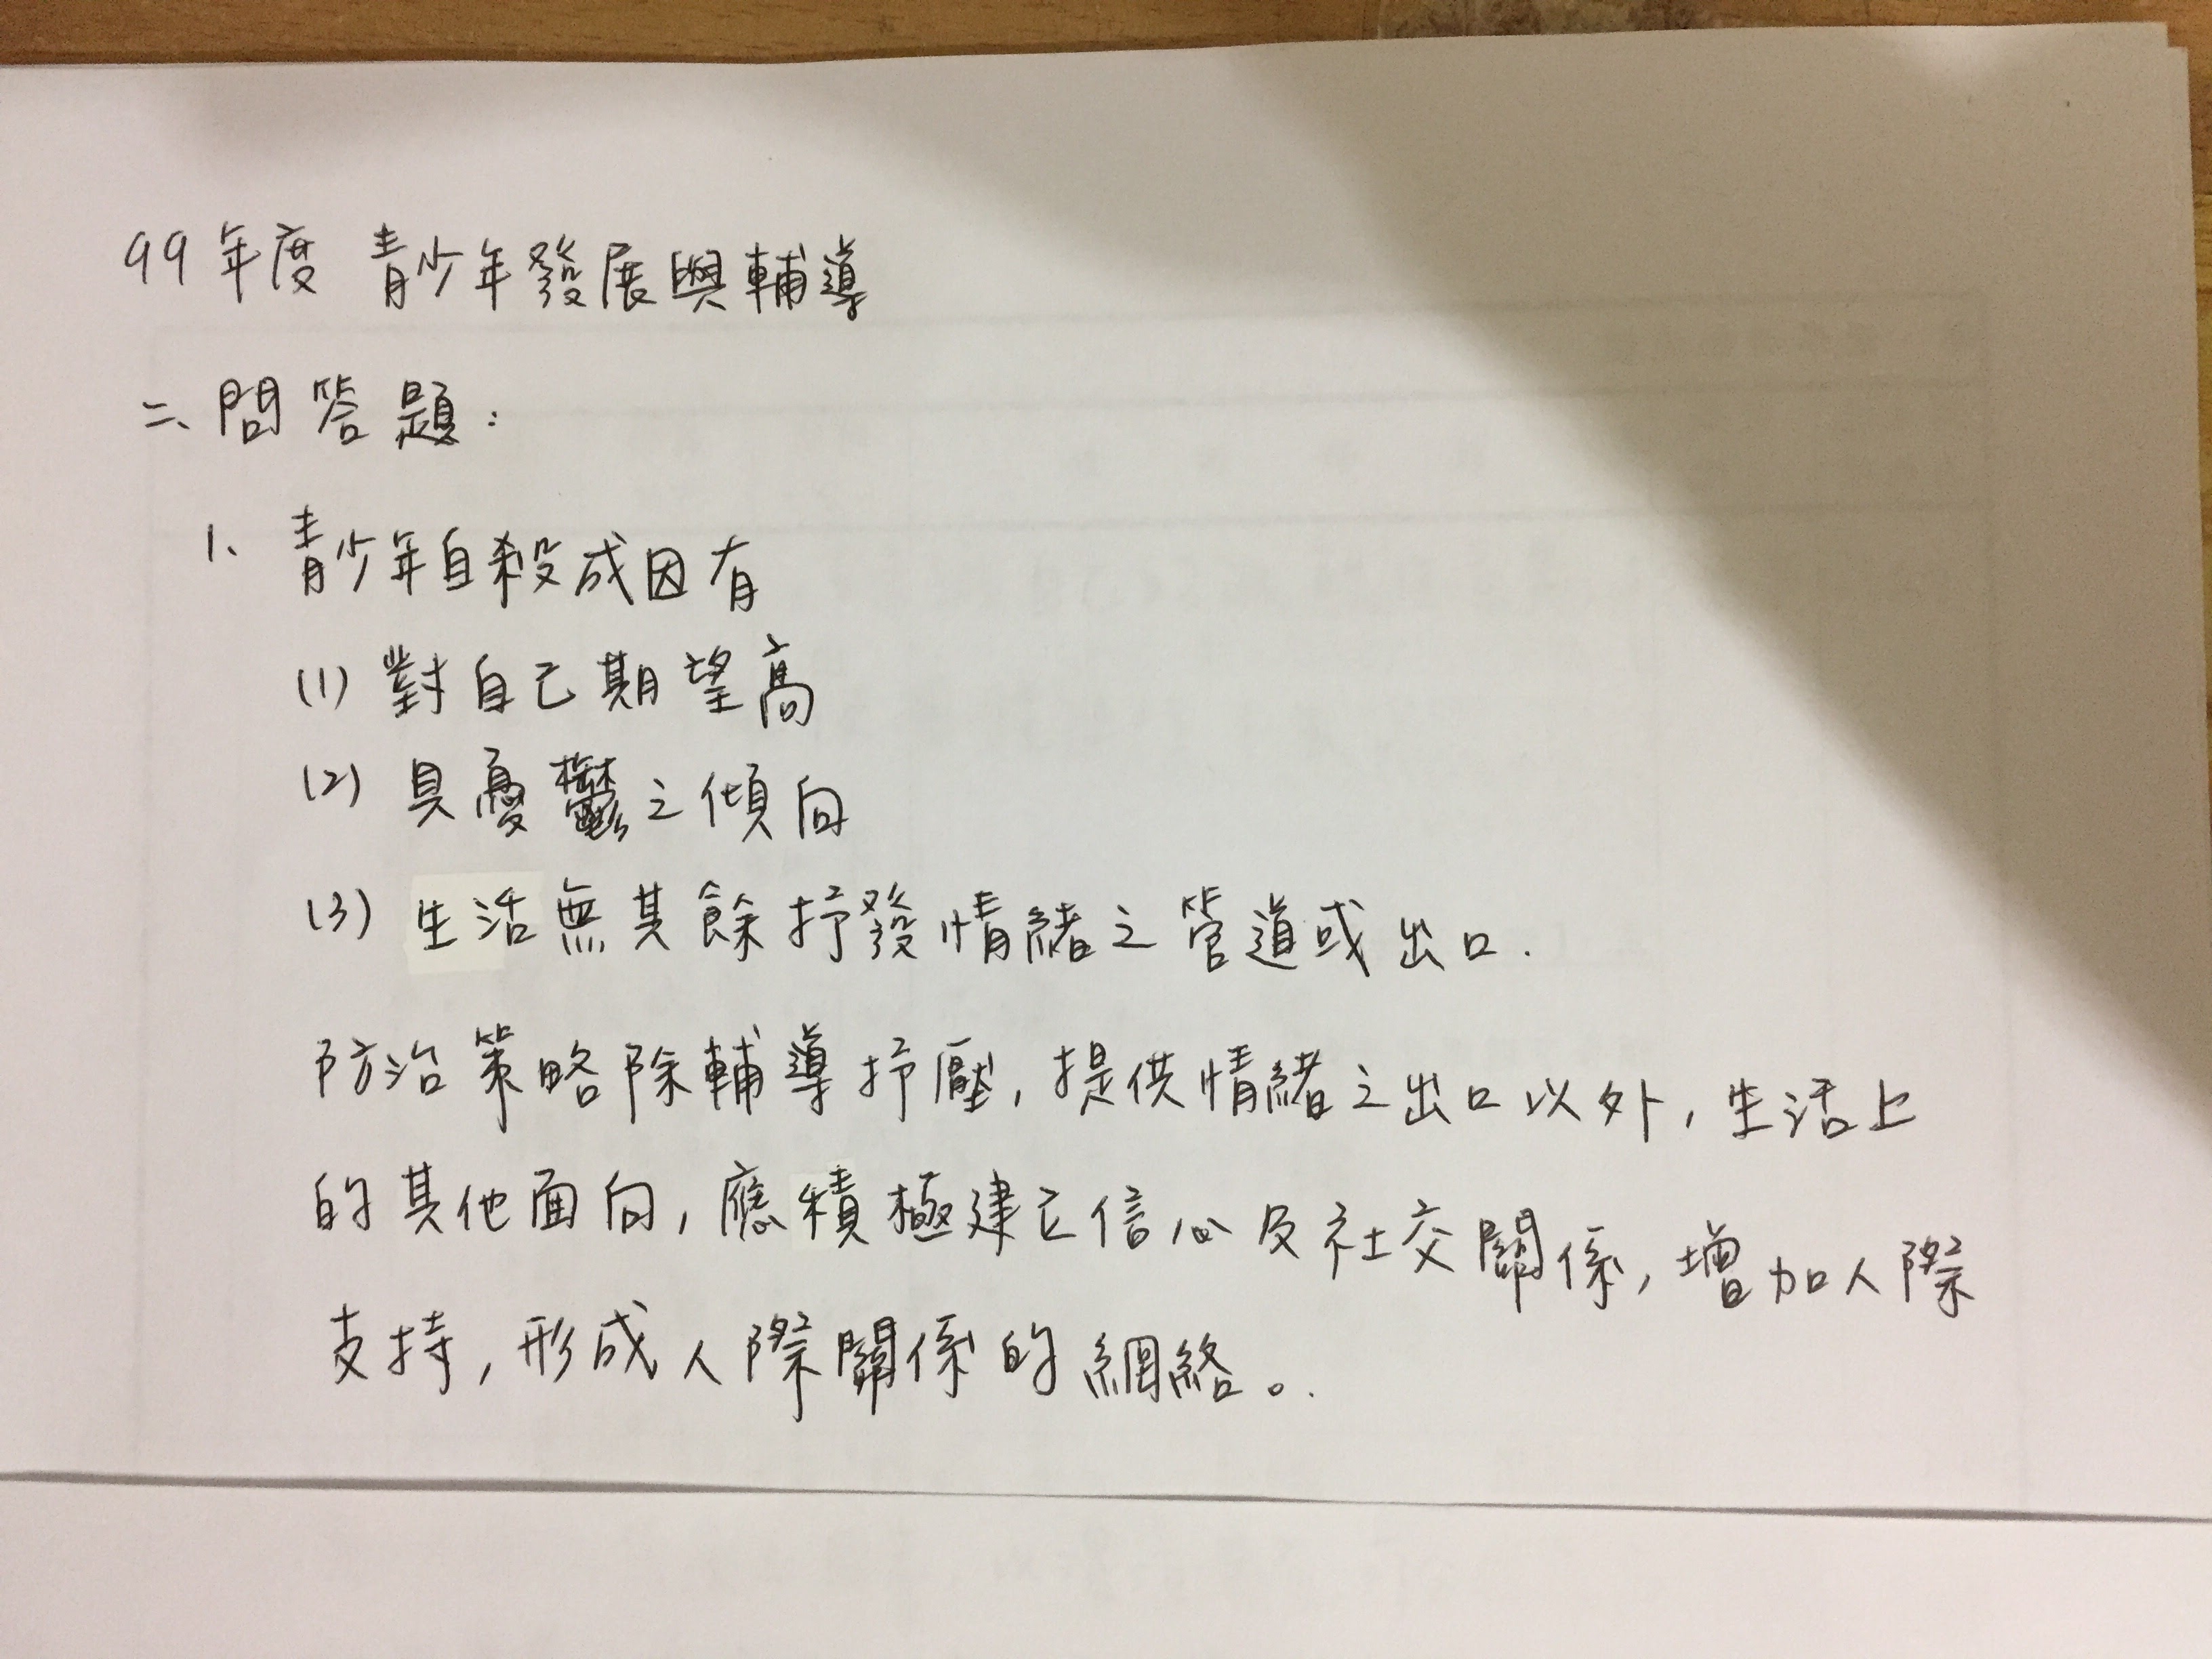 99年度 青少年發展與輔導
二、問答題:
1、青少年自殺成因有
(1) 對自己期望高
(2) 具憂鬱之傾向
(3) 生活無其餘抒發情緒之管道或出口.
防治策略除輔導抒壓,提供情緒之出口以外,生活上
的其他面向,應積極建立信心及社交關係,增加人際
支持,形成人際關係的網絡。